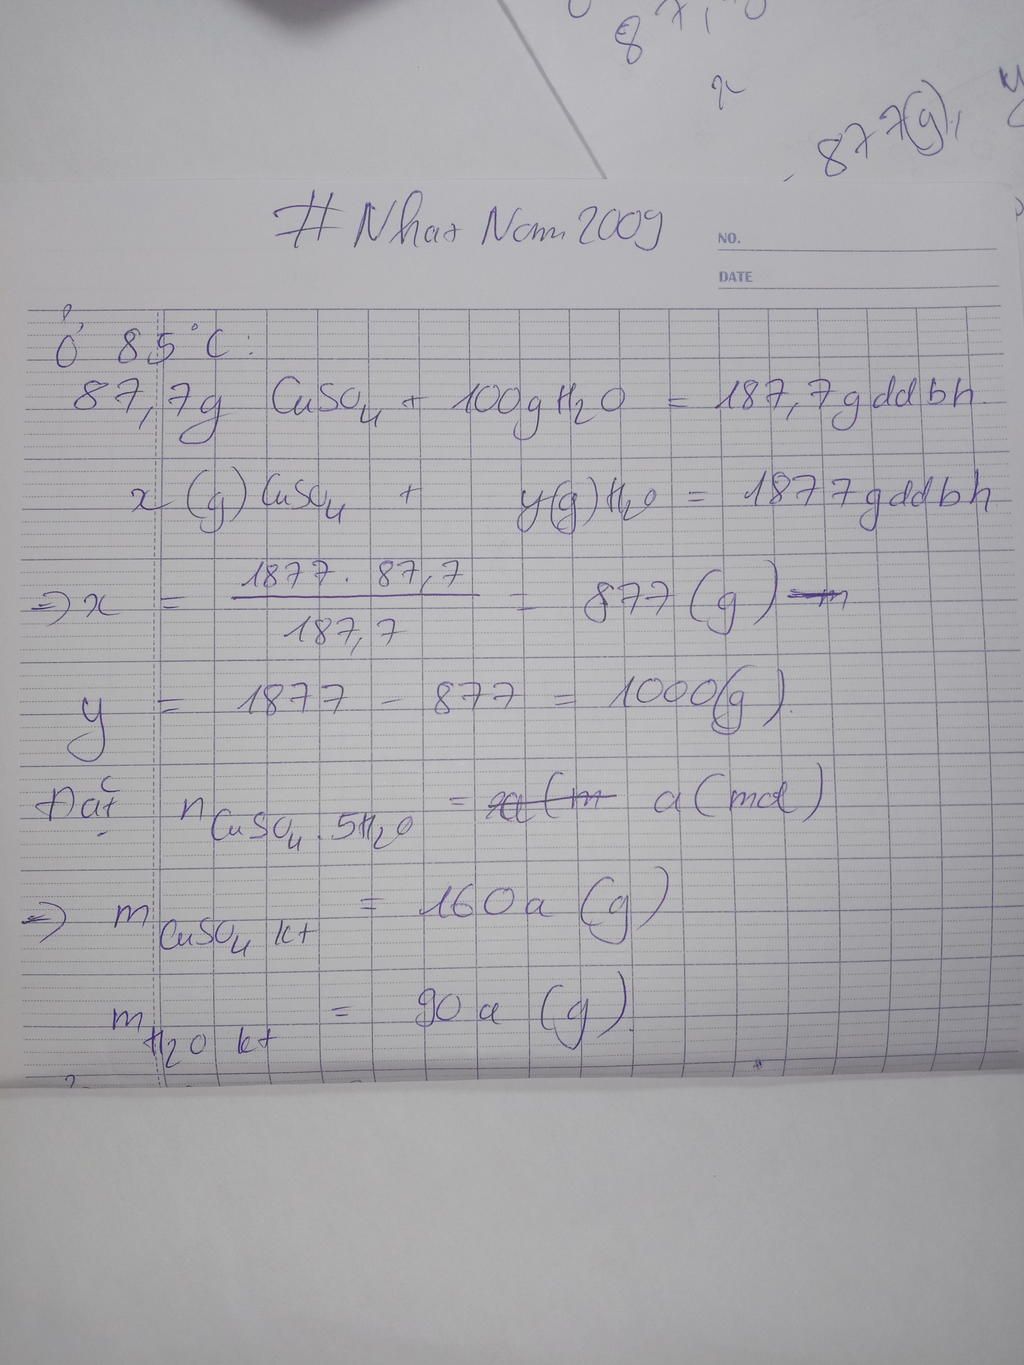 87,
x
877(g),
#Nhat Nam2009
NO.
DATE
Ở 85°C:
87,7g CuSO4 + 100g H2O = 187,7g ddbh
x (g) CuSO4 + y(g) H2O = 1877g ddbh
=> x = 1877. 87,7 / 187,7 = 877 (g)
y = 1877 - 877 = 1000(g).
Đặt n CuSO4.5H2O = a (mol)
=> m CuSO4 kt = 160a (g)
m H2O kt = 90a (g).